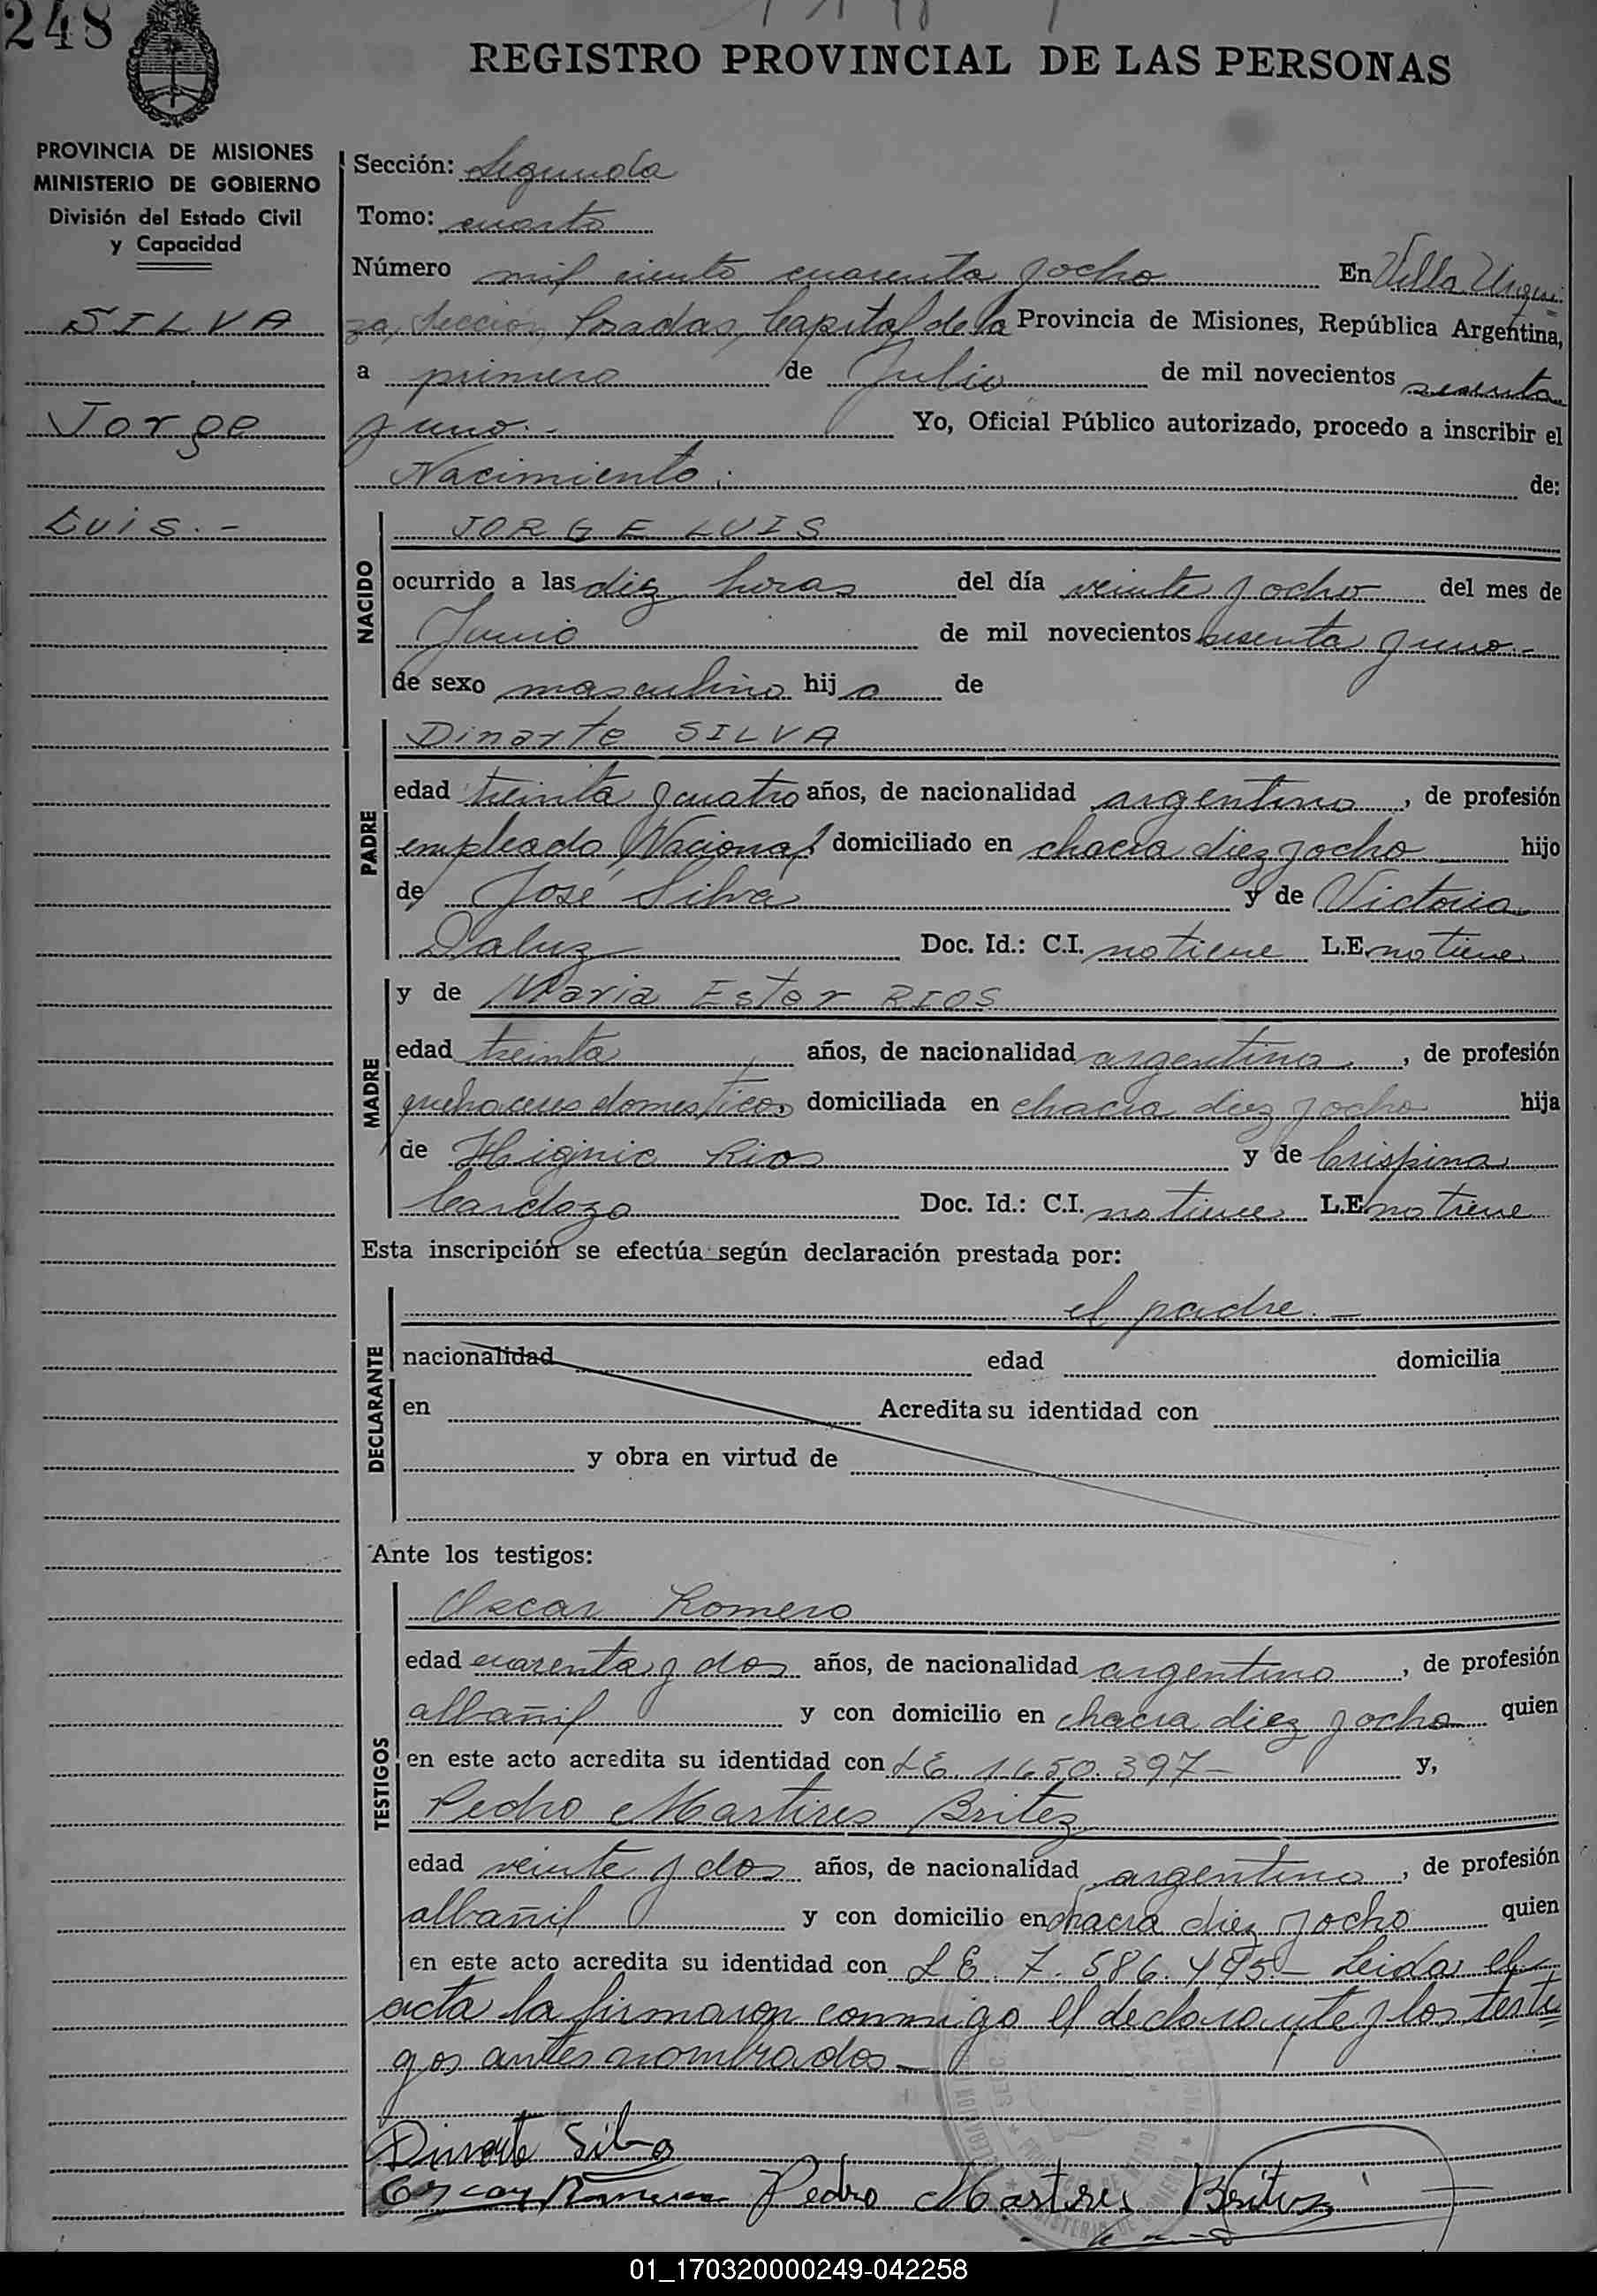 248
REGISTRO PROVINCIAL DE LAS PERSONAS
PROVINCIA DE MISIONES
MINISTERIO DE GOBIERNO
División del Estado Civil
y Capacidad
SILVA
Jorge
Luis.-
Sección: Segunda
Tomo: cuarto
Número mil ciento cuarenta y ocho En Villa Urqui
za, Sección Posadas, Capital de la Provincia de Misiones, República Argentina,
a primero de Julio de mil novecientos sesenta
y uno.- Yo, Oficial Público autorizado, procedo a inscribir el
Nacimiento: de:
NACIDO
JORGE LUIS
ocurrido a las diez horas del día veinte y ocho del mes de
Junio de mil novecientos sesenta y uno.-
de sexo masculino hijo de
PADRE
Dinarte SILVA
edad treinta y cuatro años, de nacionalidad argentino, de profesión
empleado Nacional domiciliado en chacra diez y ocho hijo
de José Silva y de Victoria
Daluz Doc. Id.: C.I. no tiene L.E. no tiene
MADRE
y de Maria Ester RIOS
edad treinta años, de nacionalidad argentina, de profesión
quehaceres domesticos domiciliada en chacra diez y ocho hija
de Higinio Rios y de Crispina
Cardozo Doc. Id.: C.I. no tiene L.E. no tiene
Esta inscripción se efectúa según declaración prestada por:
DECLARANTE
el padre.-
nacionalidad edad domicilia
en Acredita su identidad con
y obra en virtud de
Ante los testigos:
TESTIGOS
Oscar Romero
edad cuarenta y dos años, de nacionalidad argentino, de profesión
albañil y con domicilio en chacra diez y ocho quien
en este acto acredita su identidad con LE. 1.650.397- y,
Pedro Martires Britez
edad veinte y dos años, de nacionalidad argentino, de profesión
albañil y con domicilio en chacra diez y ocho quien
en este acto acredita su identidad con L E. 7.586.495.- Leida el
acta la firmaron conmigo el declarante y los testi
gos antes nombrados.-
Dinarte Silva
Oscar Romero Pedro Martires Britez
01_170320000249-042258